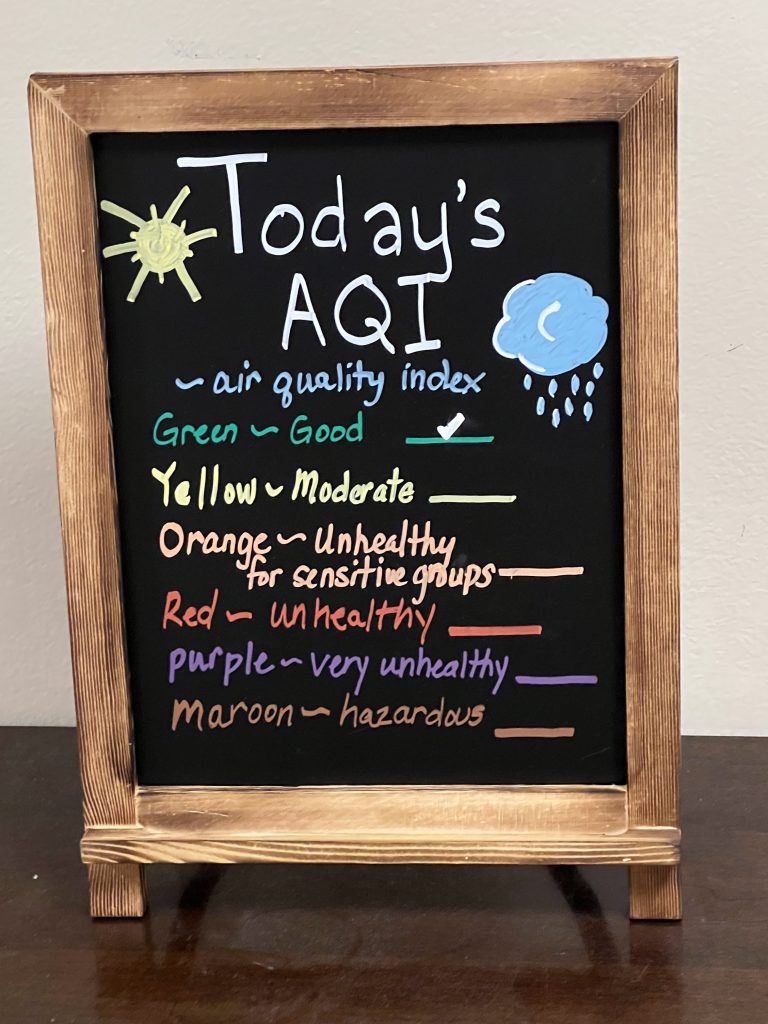 Today's
AQI
~ air quality index
Green ~ Good ✓
Yellow ~ Moderate
Orange ~ Unhealthy
for sensitive groups
Red ~ unhealthy
purple ~ very unhealthy
maroon ~ hazardous